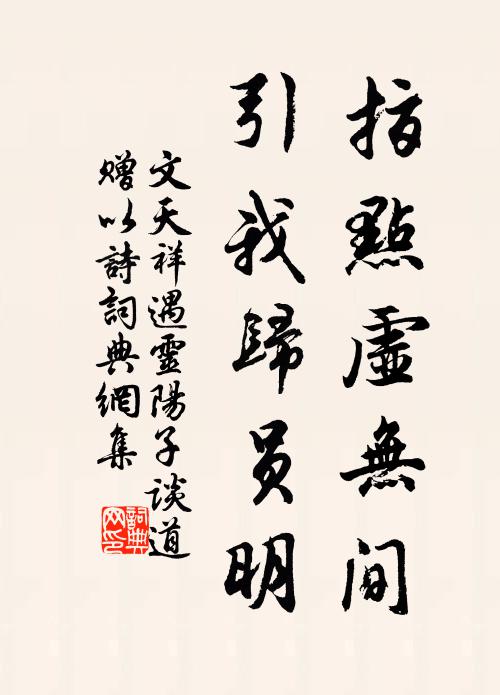 指點虛無間
引我歸員明
文天祥遇靈陽子談道
贈以詩詞典網集
詞典网印